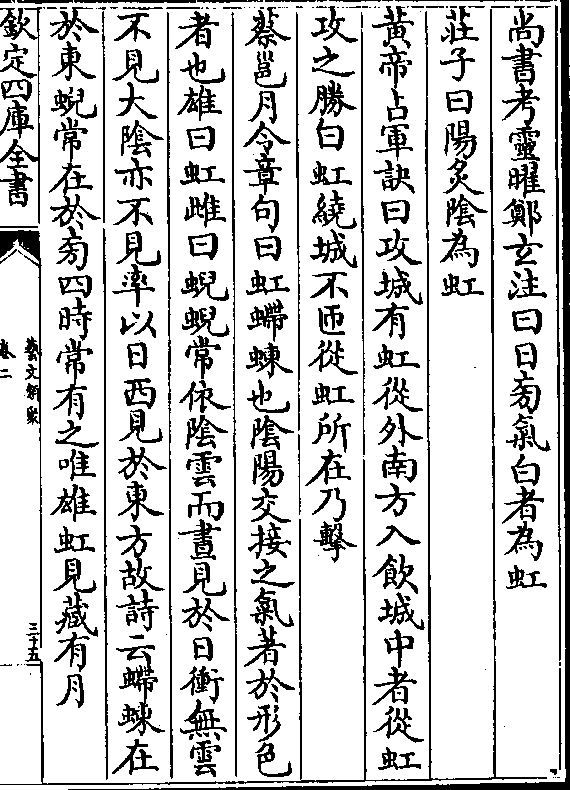 尚書考靈曜鄭玄注曰日旁氣白者為虹
莊子曰陽炙陰為虹
黃帝占軍訣曰攻城有虹從外南方入飲城中者從虹
攻之勝白虹繞城不匝從虹所在乃擊
蔡邕月令章句曰虹螮蝀也陰陽交接之氣著於形色
者也雄曰虹雌曰蜺蜺常依陰雲而晝見於日衝無雲
不見大陰亦不見率以日西見於東方故詩云螮蝀在
於東蜺常在於旁四時常有之唯雄虹見藏有月
欽定四庫全書
藝文類聚
卷二
三十五